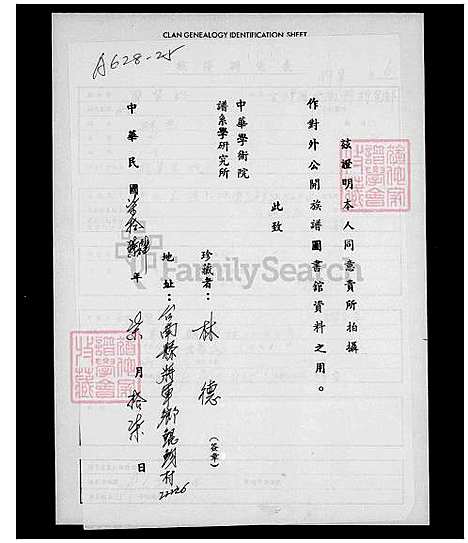 CLAN GENEALOGY IDENTIFICATION SHEET
A628-25
茲證明本人同意貴所拍攝
作對外公開族譜圖書館資料之用。
此致
中華學術院
譜系學研究所
珍藏者：林德(簽章)
地址：台南縣將軍鄉鯤鯓村
中華民國 年柒月拾柒日
FamilySearch